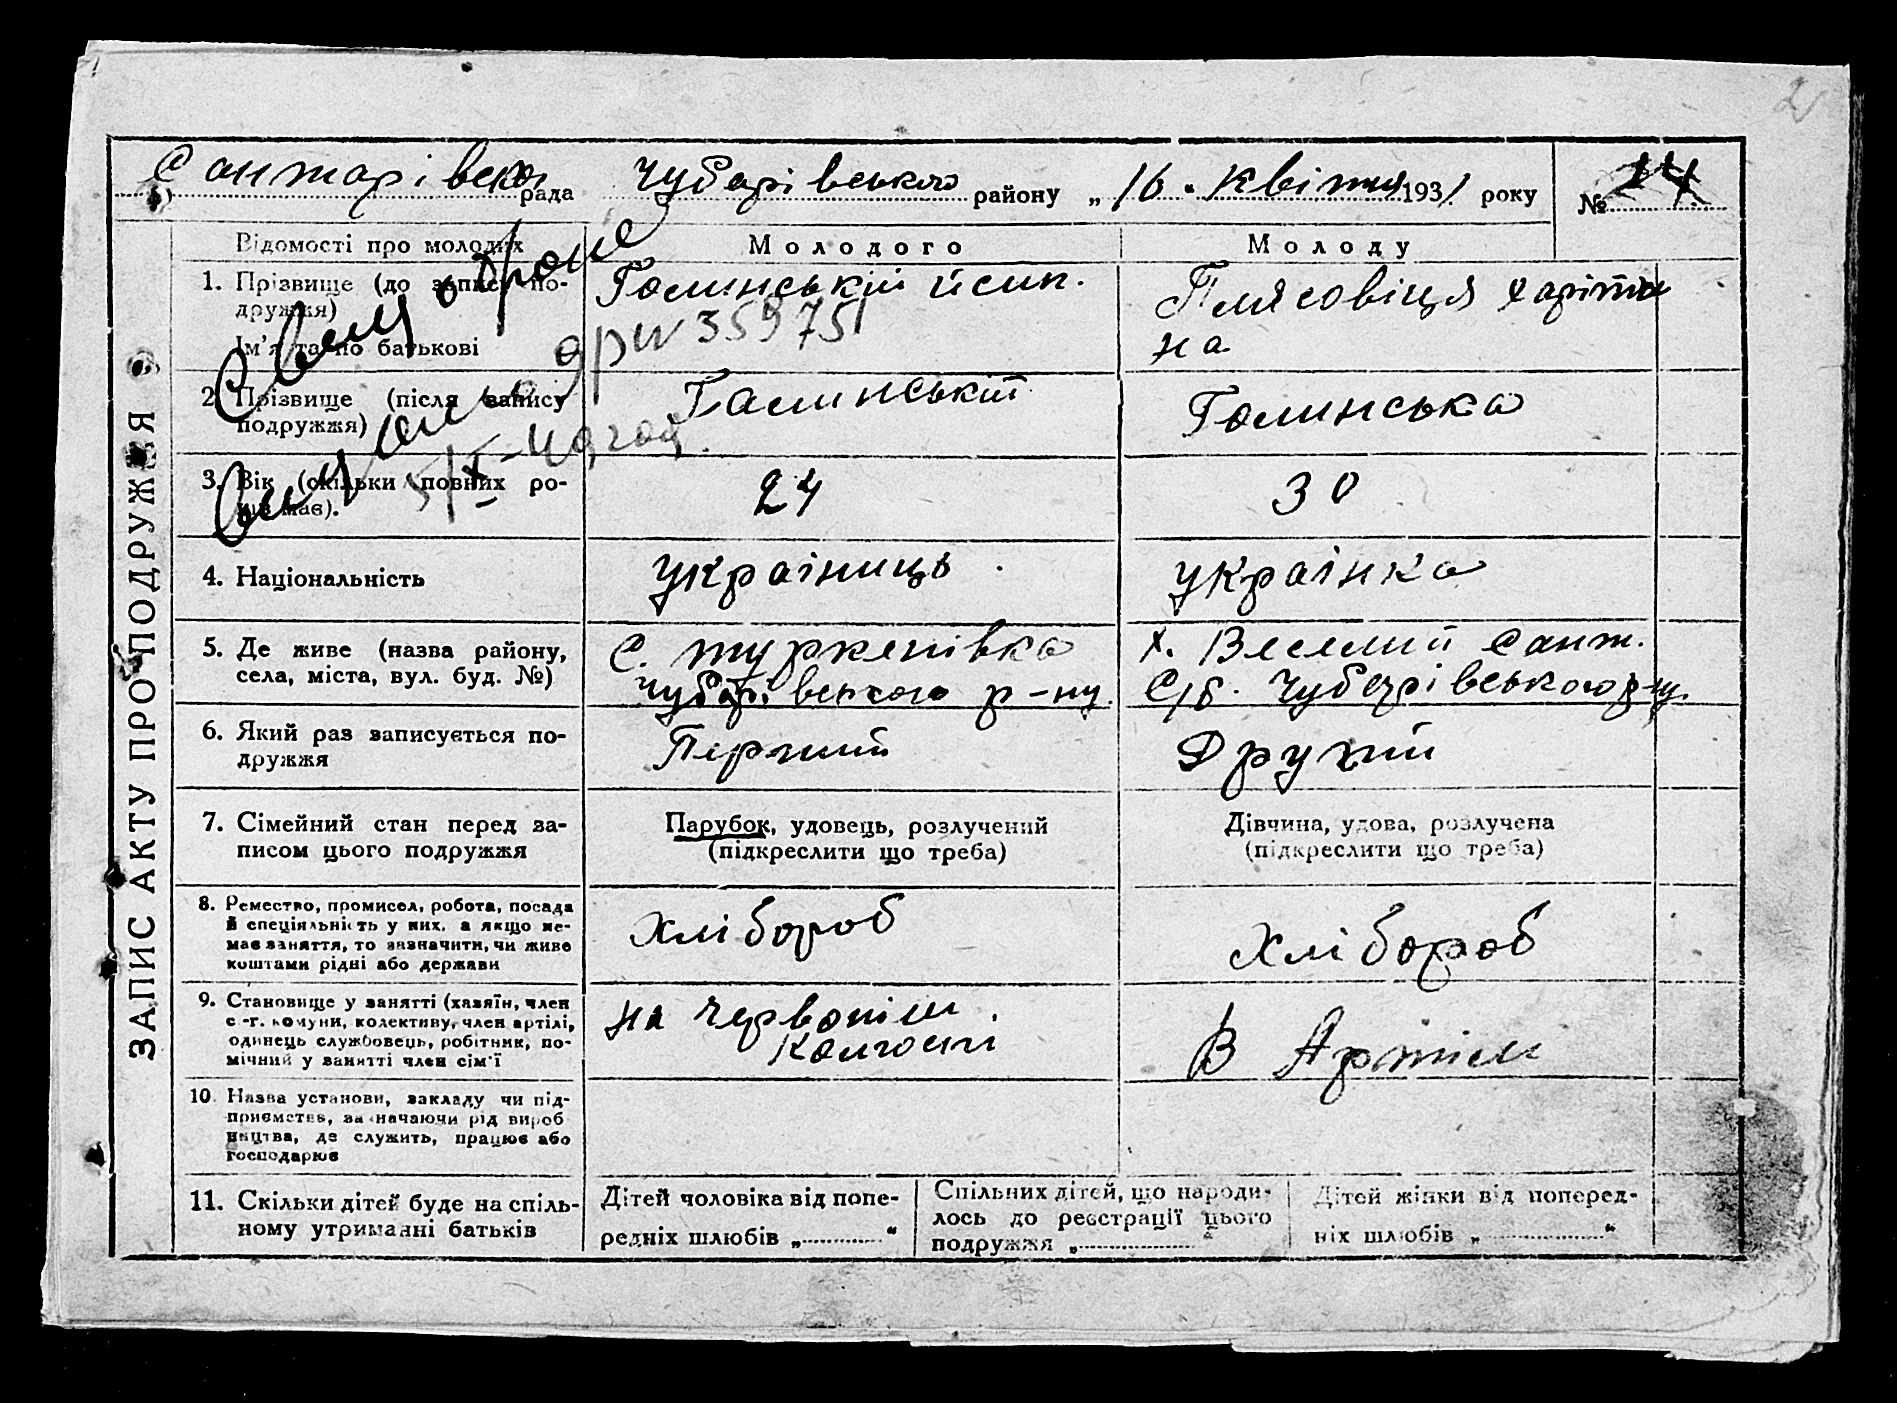 2
Сантарівська рада Чубарівського району „16" квітня 1931 року № 14
ЗАПИС АКТУ ПРО ПОДРУЖЖЯ
Відомості про молодих
Молодого
Молоду
1. Прізвище (до запису по-
дружжя)
Ім'я та по батькові
Галинський йсип.
Плясовіця харіти
на
2. Прізвище (після запису
подружжя)
Галинській
Галинська
3. Вік (скільки повних ро-
ків має).
24
30
4. Національність
україниць
українка
5. Де живе (назва району,
села, міста, вул. буд. №)
с. туркенівка
чубарівського р-ну.
х. Веселий Сант.
с/б. Чубарівського р-ну.
6. Який раз записується по-
дружжя
Перший
Другий
7. Сімейний стан перед за-
писом цього подружжя
Парубок, удовець, розлучений
(підкреслити що треба)
Дівчина, удова, розлучена
(підкреслити що треба)
8. Ремество, промисел, робота, посада
й спеціяльність у них, а якщо не-
має заняття, то зазначити, чи живе
коштами рідні або держави
хлібороб
хлібороб
9. Становище у занятті (хазяїн, член
с.-г. комуни, колективу, член артілі,
одинець службовець, робітник, по-
мічний у занятті член сім'ї
на Червонім
Колгоспі
В Артілі
10. Назва установи, закладу чи під-
приємства, зазначаючи рід вироб
ництва, де служить, працює або
господарює
11. Скільки дітей буде на спіль-
ному утриманні батьків
Дітей чоловіка від попе-
редніх шлюбів „ "
Спільних дітей, що народи-
лось до реєстрації цього
подружжя „ "
Дітей жінки від поперед-
ніх шлюбів „ "
Свид о браке
выдано 359751
5/X-49 год.